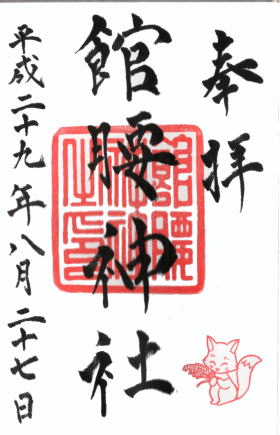 奉拝
館腰神社
平成二十九年八月二十七日
館腰神社之印